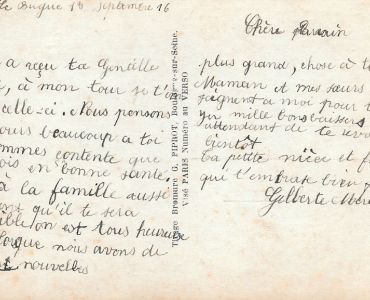 Le Bugue 18 Septembre 16
a reçu ta Gentille
, à mon tour je t'en
celle-ci. Nous pensons
jours beaucoup a toi
sommes contente que
sois en bonne santé.
à la famille aussi
ent qu'il te sera
sible on est tous heureuse
lorque nous avons de
nouvelles
Tirage Bromure G. PIPROT, Boulogne-sur-Seine.
Visé PARIS Numéro au VERSO
Chère Parrain
plus grand, chose à t
Maman et mes sœurs
joignent a moi pour t
un mille bons baisers
attendant de te revoi
bientôt
ta petite nièce et f
qui t'embrase bien f
Gilberte